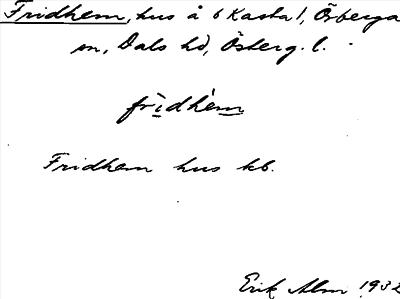 Fridhem, hus å 6 Kasta 1, Örberga
sn, Dals hd, Österg. l.
frìdhèm
Fridhem hus kb.
Erik Alm 1932